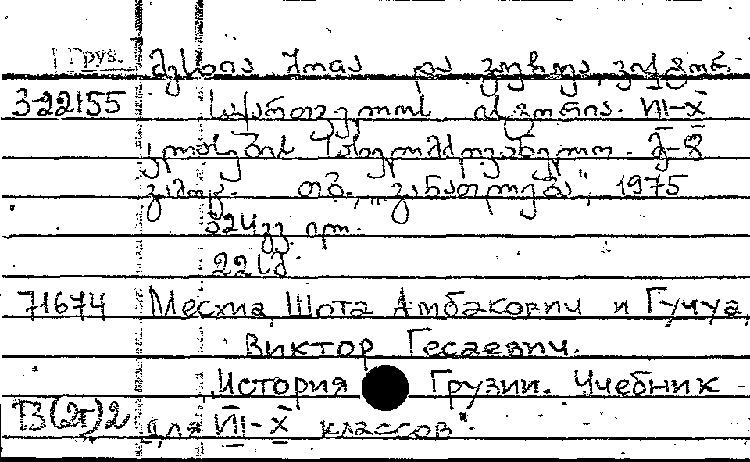 Груз. მესხია შოთა და გუჩუა ვიქტორ
3-22155 საქართველოს ისტორია. VII-X
კლასების სახელმძღვანელო. მე-8
გამოც. თბ., „განათლება“, 1975
324 გვ.
22 სმ
71674 Месхиа, Шота Амбакович и Гучуа,
Виктор Гесаевич.
„История Грузии. Учебник
для VII-X классов“.